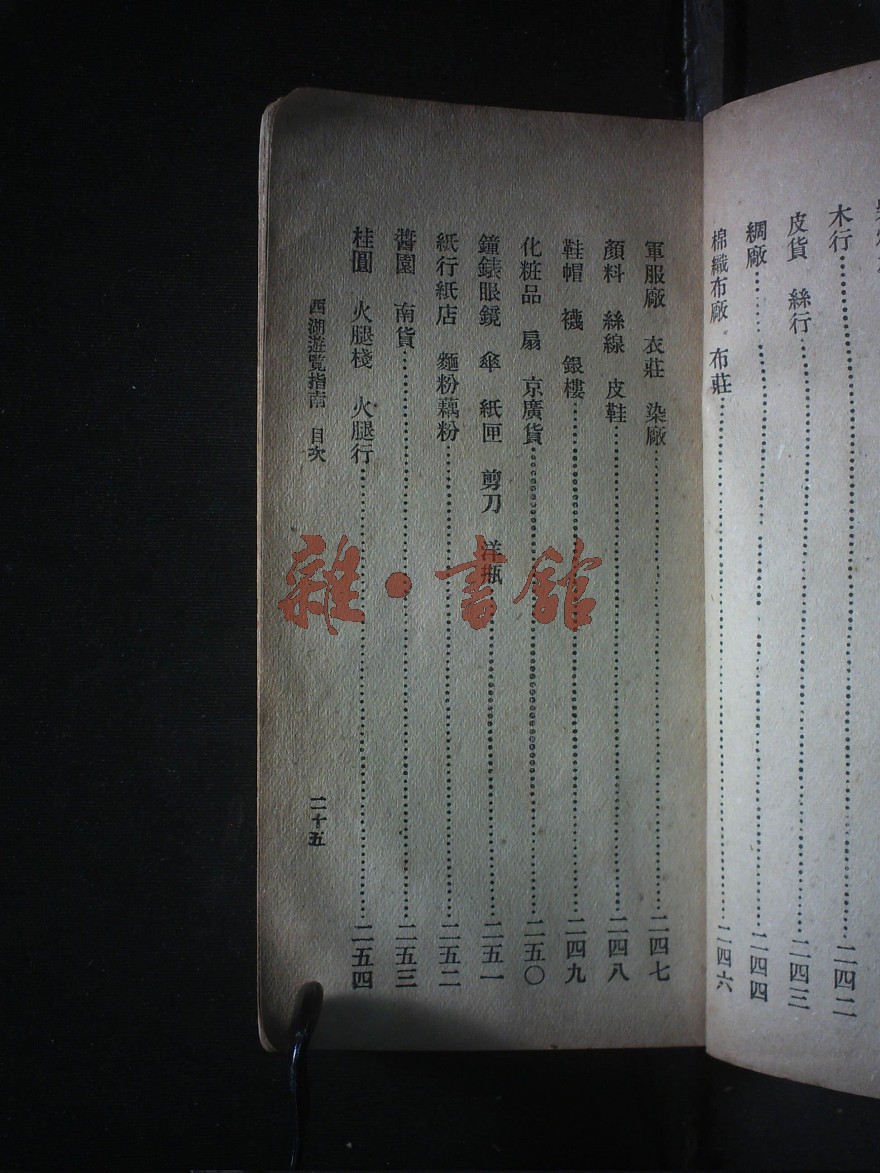 木行……二四二
皮貨　絲行……二四三
綢廠……二四四
棉織布廠　布莊……二四六
軍服廠　衣莊　染廠……二四七
顏料　絲線　皮鞋……二四八
鞋帽　襪　銀樓……二四九
化粧品　扇　京廣貨……二五〇
鐘錶眼鏡　傘　紙匣　剪刀　洋瓶……二五一
紙行紙店　麵粉藕粉……二五二
醬園　南貨……二五三
桂圓　火腿棧　火腿行……二五四
西湖遊覽指南　目次　二十五
雜·書館